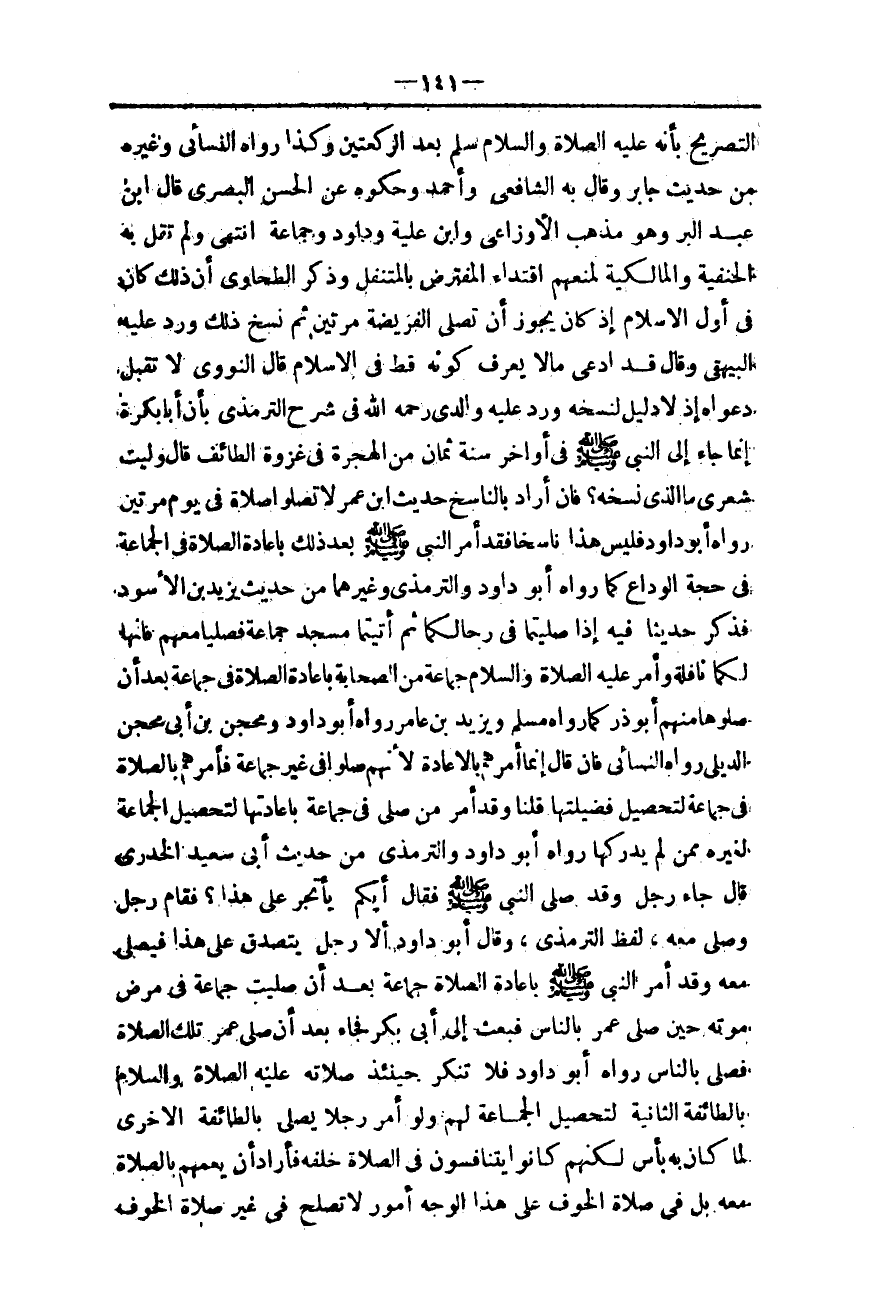 —١٤١—
التصريح بأنه عليه الصلاة والسلام سلم بعد الركعتين وكذا رواه النسأى وغيره
من حديث جابر وقال به الشافعى وأحمد وحكوه عن الحسن البصرى قال ابن
عبد البر وهو مذهب الأوزاعى وابن علية وداود وجماعة انتهى ولم تقل به
الحنفية والمالكية لمنعهم اقتداء المفترض بالمتنفل وذكر الطحاوى أن ذلك كان
فى أول الاسلام إذ كان يجوز أن تصلى الفريضة مرتين ثم نسخ ذلك ورد عليه
البيهقى وقال قد ادعى مالا يعرف كونه قط فى الاسلام قال النووى لا تقبل
دعواه إذ لا دليل لنسخه ورد عليه والدى رحمه الله فى شرح الترمذى بأن أبا بكرة
إنما جاء إلى النبى ﷺ فى أواخر سنة ثمان من الهجرة فى غزوة الطائف قال وليت
شعرى ما الذى نسخه؟ فان أراد بالناسخ حديث ابن عمر لا تصلوا صلاة فى يوم مرتين
رواه أبو داود فليس هذا ناسخا فقد أمر النبى ﷺ بعد ذلك باعادة الصلاة فى الجماعة
فى حجة الوداع كما رواه أبو داود والترمذى وغيرهما من حديث يزيد بن الأسود
فذكر حديثا فيه إذا صليتما فى رحالكما ثم أتيتما مسجد جماعة فصليا معهم فانها
لكما نافلة وأمر عليه الصلاة والسلام جماعة من الصحابة باعادة الصلاة فى جماعة بعد أن
صلوها منهم أبو ذر كما رواه مسلم ويزيد بن عامر رواه أبو داود ومحجن بن أبى محجن
الديلى رواه النسائى فان قال إنما أمرهم بالاعادة لأنهم صلوا فى غير جماعة فأمرهم بالصلاة
فى جماعة لتحصيل فضيلتها قلنا وقد أمر من صلى فى جماعة باعادتها لتحصيل الجماعة
لغيره ممن لم يدركها رواه أبو داود والترمذى من حديث أبى سعيد الخدرى
قال جاء رجل وقد صلى النبى ﷺ فقال أيكم يأتجر على هذا؟ فقام رجل
وصلى معه، لفظ الترمذى، وقال أبو داود ألا رجل يتصدق على هذا فيصلى
معه وقد أمر النبى ﷺ باعادة الصلاة جماعة بعد أن صليت جماعة فى مرض
موته حين صلى عمر بالناس فبعث إلى أبى بكر فجاء بعد أن صلى عمر تلك الصلاة
فصلى بالناس رواه أبو داود فلا تنكر حينئذ صلاته عليه الصلاة والسلام
بالطائفة الثانية لتحصيل الجماعة لهم ولو أمر رجلا يصلى بالطائفة الاخرى
لما كان به بأس لكنهم كانوا يتنافسون فى الصلاة خلفه فأراد أن يعمهم بالصلاة
معه بل فى صلاة الخوف على هذا الوجه أمور لا تصلح فى غير صلاة الخوف